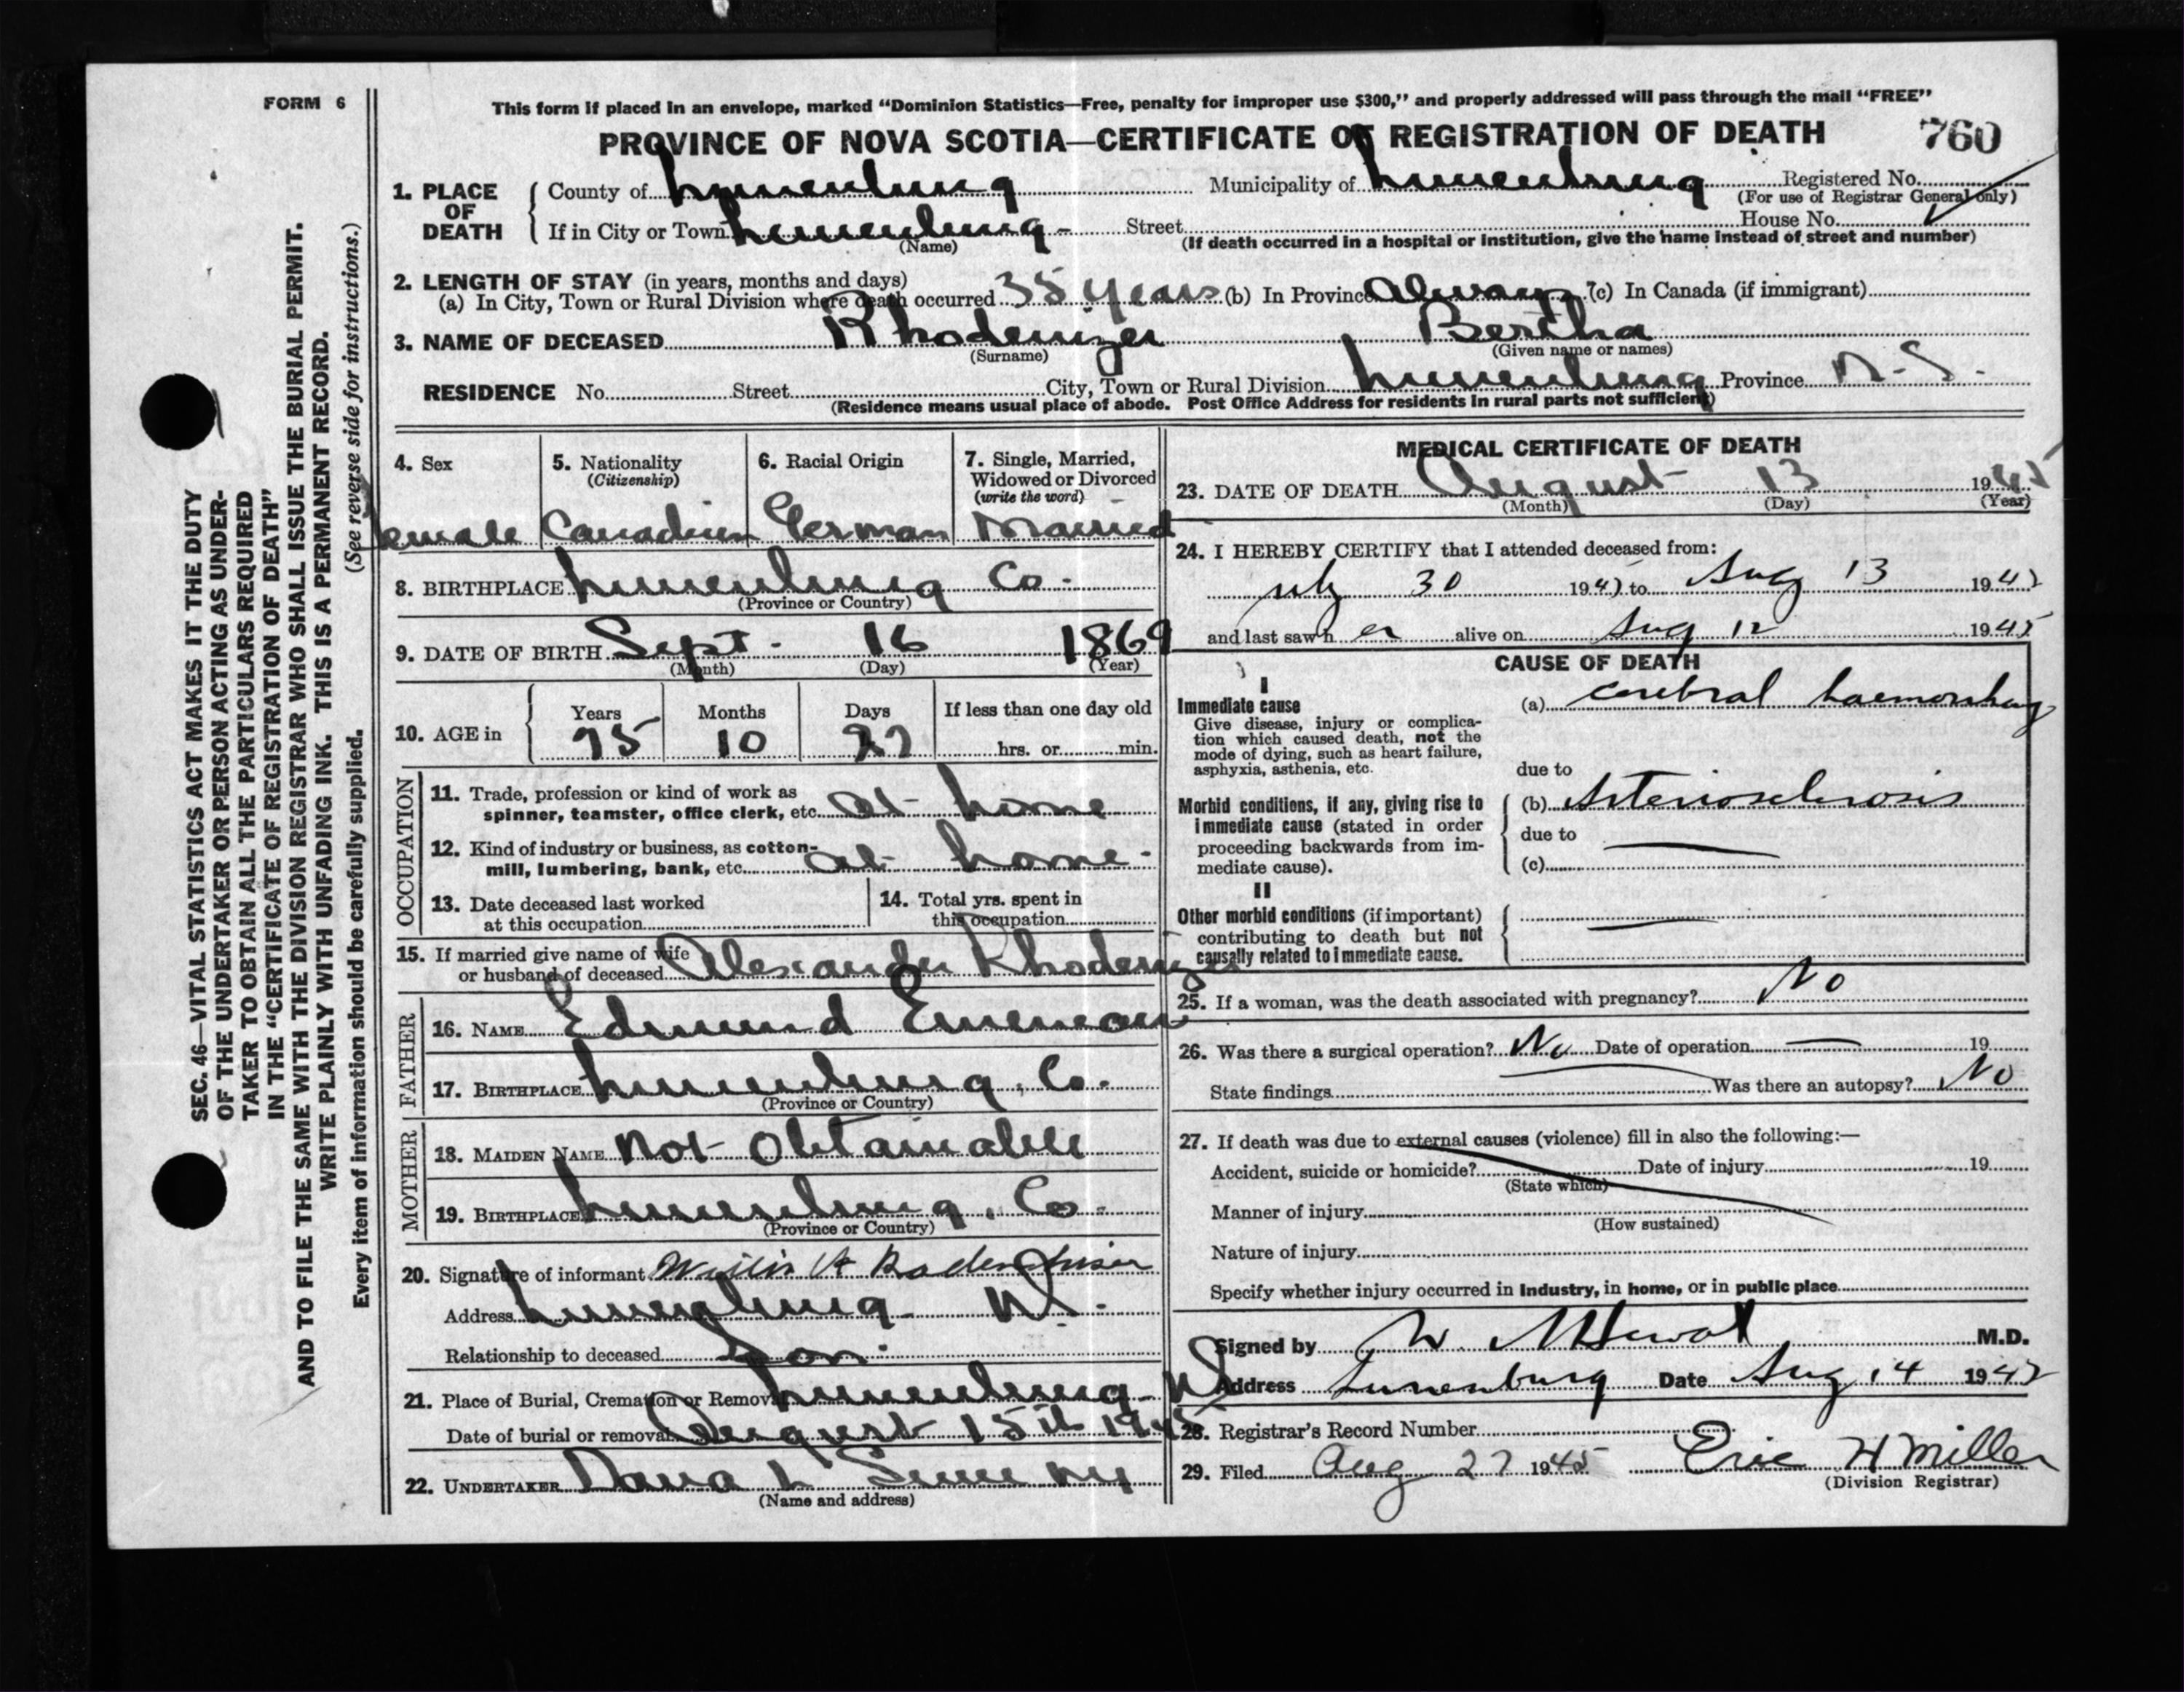 FORM 6
This form if placed in an envelope, marked “Dominion Statistics—Free, penalty for improper use $300,” and properly addressed will pass through the mail “FREE”
PROVINCE OF NOVA SCOTIA—CERTIFICATE OF REGISTRATION OF DEATH 760
1. PLACE OF DEATH
County of Lunenburg Municipality of Lunenburg Registered No.
(For use of Registrar General only)
If in City or Town Lunenburg - Street House No.
(Name) (If death occurred in a hospital or institution, give the name instead of street and number)
2. LENGTH OF STAY (in years, months and days)
(a) In City, Town or Rural Division where death occurred 35 years (b) In Province Always (c) In Canada (if immigrant)
3. NAME OF DECEASED Rhodenizer Bertha
(Surname) (Given name or names)
RESIDENCE No. Street City, Town or Rural Division Lunenburg Province N.S.
(Residence means usual place of abode. Post Office Address for residents in rural parts not sufficient)
4. Sex 5. Nationality (Citizenship) 6. Racial Origin 7. Single, Married, Widowed or Divorced (write the word)
Female Canadian German Married
8. BIRTHPLACE Lunenburg Co.
(Province or Country)
9. DATE OF BIRTH Sept. 16 1869
(Month) (Day) (Year)
10. AGE in Years Months Days If less than one day old
75 10 27 hrs. or min.
OCCUPATION
11. Trade, profession or kind of work as
spinner, teamster, office clerk, etc. at home
12. Kind of industry or business, as cotton-
mill, lumbering, bank, etc. at home.
13. Date deceased last worked
at this occupation
14. Total yrs. spent in
this occupation
15. If married give name of wife
or husband of deceased Alexander Rhodenizer
FATHER
16. NAME Edmund
17. BIRTHPLACE Lunenburg, Co.
(Province or Country)
MOTHER
18. MAIDEN NAME Not Obtainable
19. BIRTHPLACE Lunenburg, Co.
(Province or Country)
20. Signature of informant
Address Lunenburg
Relationship to deceased Son.
21. Place of Burial, Cremation or Removal Lunenburg
Date of burial or removal August 15th 1945
22. UNDERTAKER
(Name and address)
MEDICAL CERTIFICATE OF DEATH
23. DATE OF DEATH August 13 1945
(Month) (Day) (Year)
24. I HEREBY CERTIFY that I attended deceased from:
July 30 1945 to Aug 13 1945
and last saw her alive on Aug 12 1945
CAUSE OF DEATH
I
Immediate cause
Give disease, injury or complica-
tion which caused death, not the
mode of dying, such as heart failure,
asphyxia, asthenia, etc.
(a) cerebral haemorrhag
due to
Morbid conditions, if any, giving rise to
immediate cause (stated in order
proceeding backwards from im-
mediate cause).
(b) Arteriosclerosis
due to
(c)
II
Other morbid conditions (if important)
contributing to death but not
causally related to immediate cause.
25. If a woman, was the death associated with pregnancy? No
26. Was there a surgical operation? No Date of operation 19
State findings Was there an autopsy? No
27. If death was due to external causes (violence) fill in also the following:—
Accident, suicide or homicide? Date of injury 19
(State which)
Manner of injury
(How sustained)
Nature of injury
Specify whether injury occurred in Industry, in home, or in public place
Signed by M.D.
Address Lunenburg Date Aug 14 1945
28. Registrar's Record Number
29. Filed Aug 27 1945 Eric H Miller
(Division Registrar)
SEC. 46—VITAL STATISTICS ACT MAKES IT THE DUTY
OF THE UNDERTAKER OR PERSON ACTING AS UNDER-
TAKER TO OBTAIN ALL THE PARTICULARS REQUIRED
IN THE “CERTIFICATE OF REGISTRATION OF DEATH”
AND TO FILE THE SAME WITH THE DIVISION REGISTRAR WHO SHALL ISSUE THE BURIAL PERMIT.
WRITE PLAINLY WITH UNFADING INK. THIS IS A PERMANENT RECORD.
Every item of information should be carefully supplied. (See reverse side for instructions.)